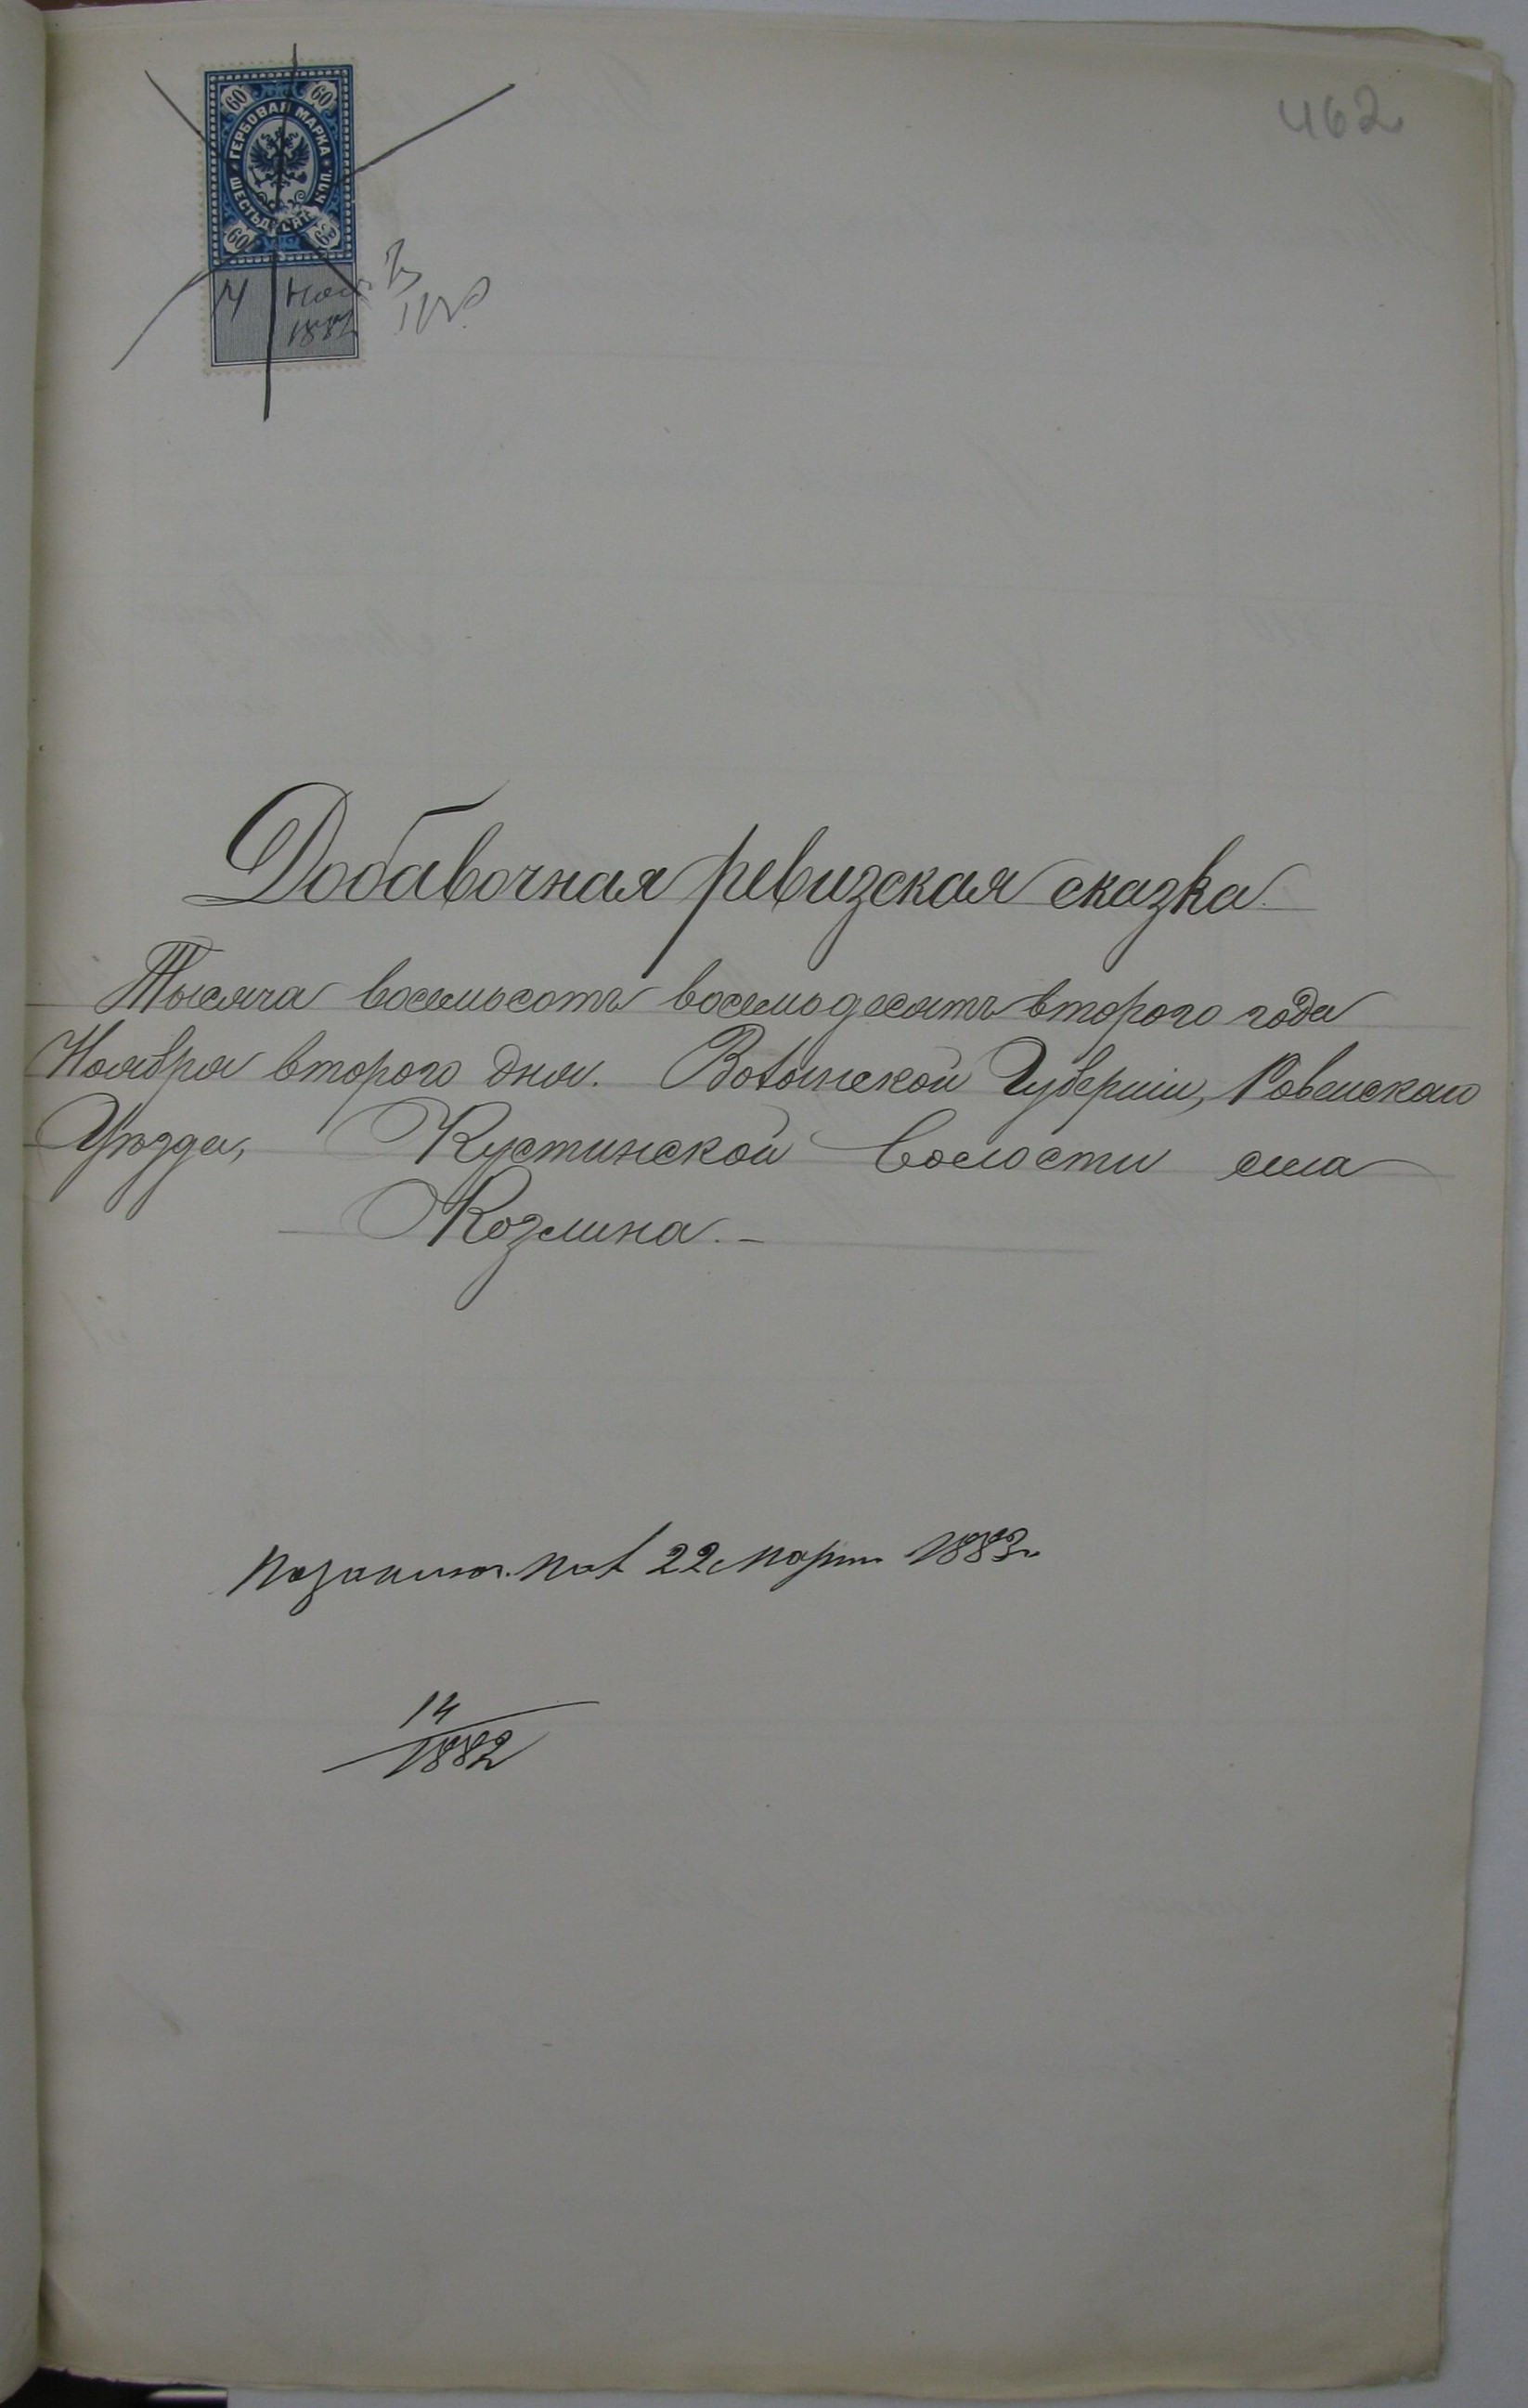 462
60 60
ГЕРБОВАЯ МАРКА
ШЕСТЬДЕСЯТЪ КОП.
60 60
4 Нояб.
1882
Добавочная ревизская сказка.
Тысяча восемьсотъ восемьдесятъ второго года
Ноября второго дня. Волынской Губерніи, Ровенскаго
Уѣзда, Кустинской Волости села
Козлина. -
22 Марта 1883 г.
14
1882